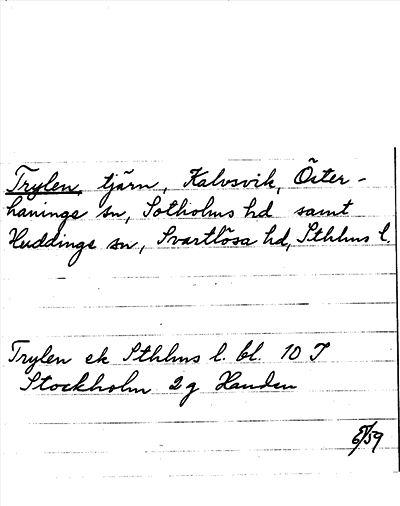 Trylen, tjärn, Kalvsvik, Öster-
haninge sn, Sotholms hd samt
Huddinge sn, Svartlösa hd, Sthlms l.
Trylen ek Sthlms l. bl. 10 I
Stockholm 2 g Handen